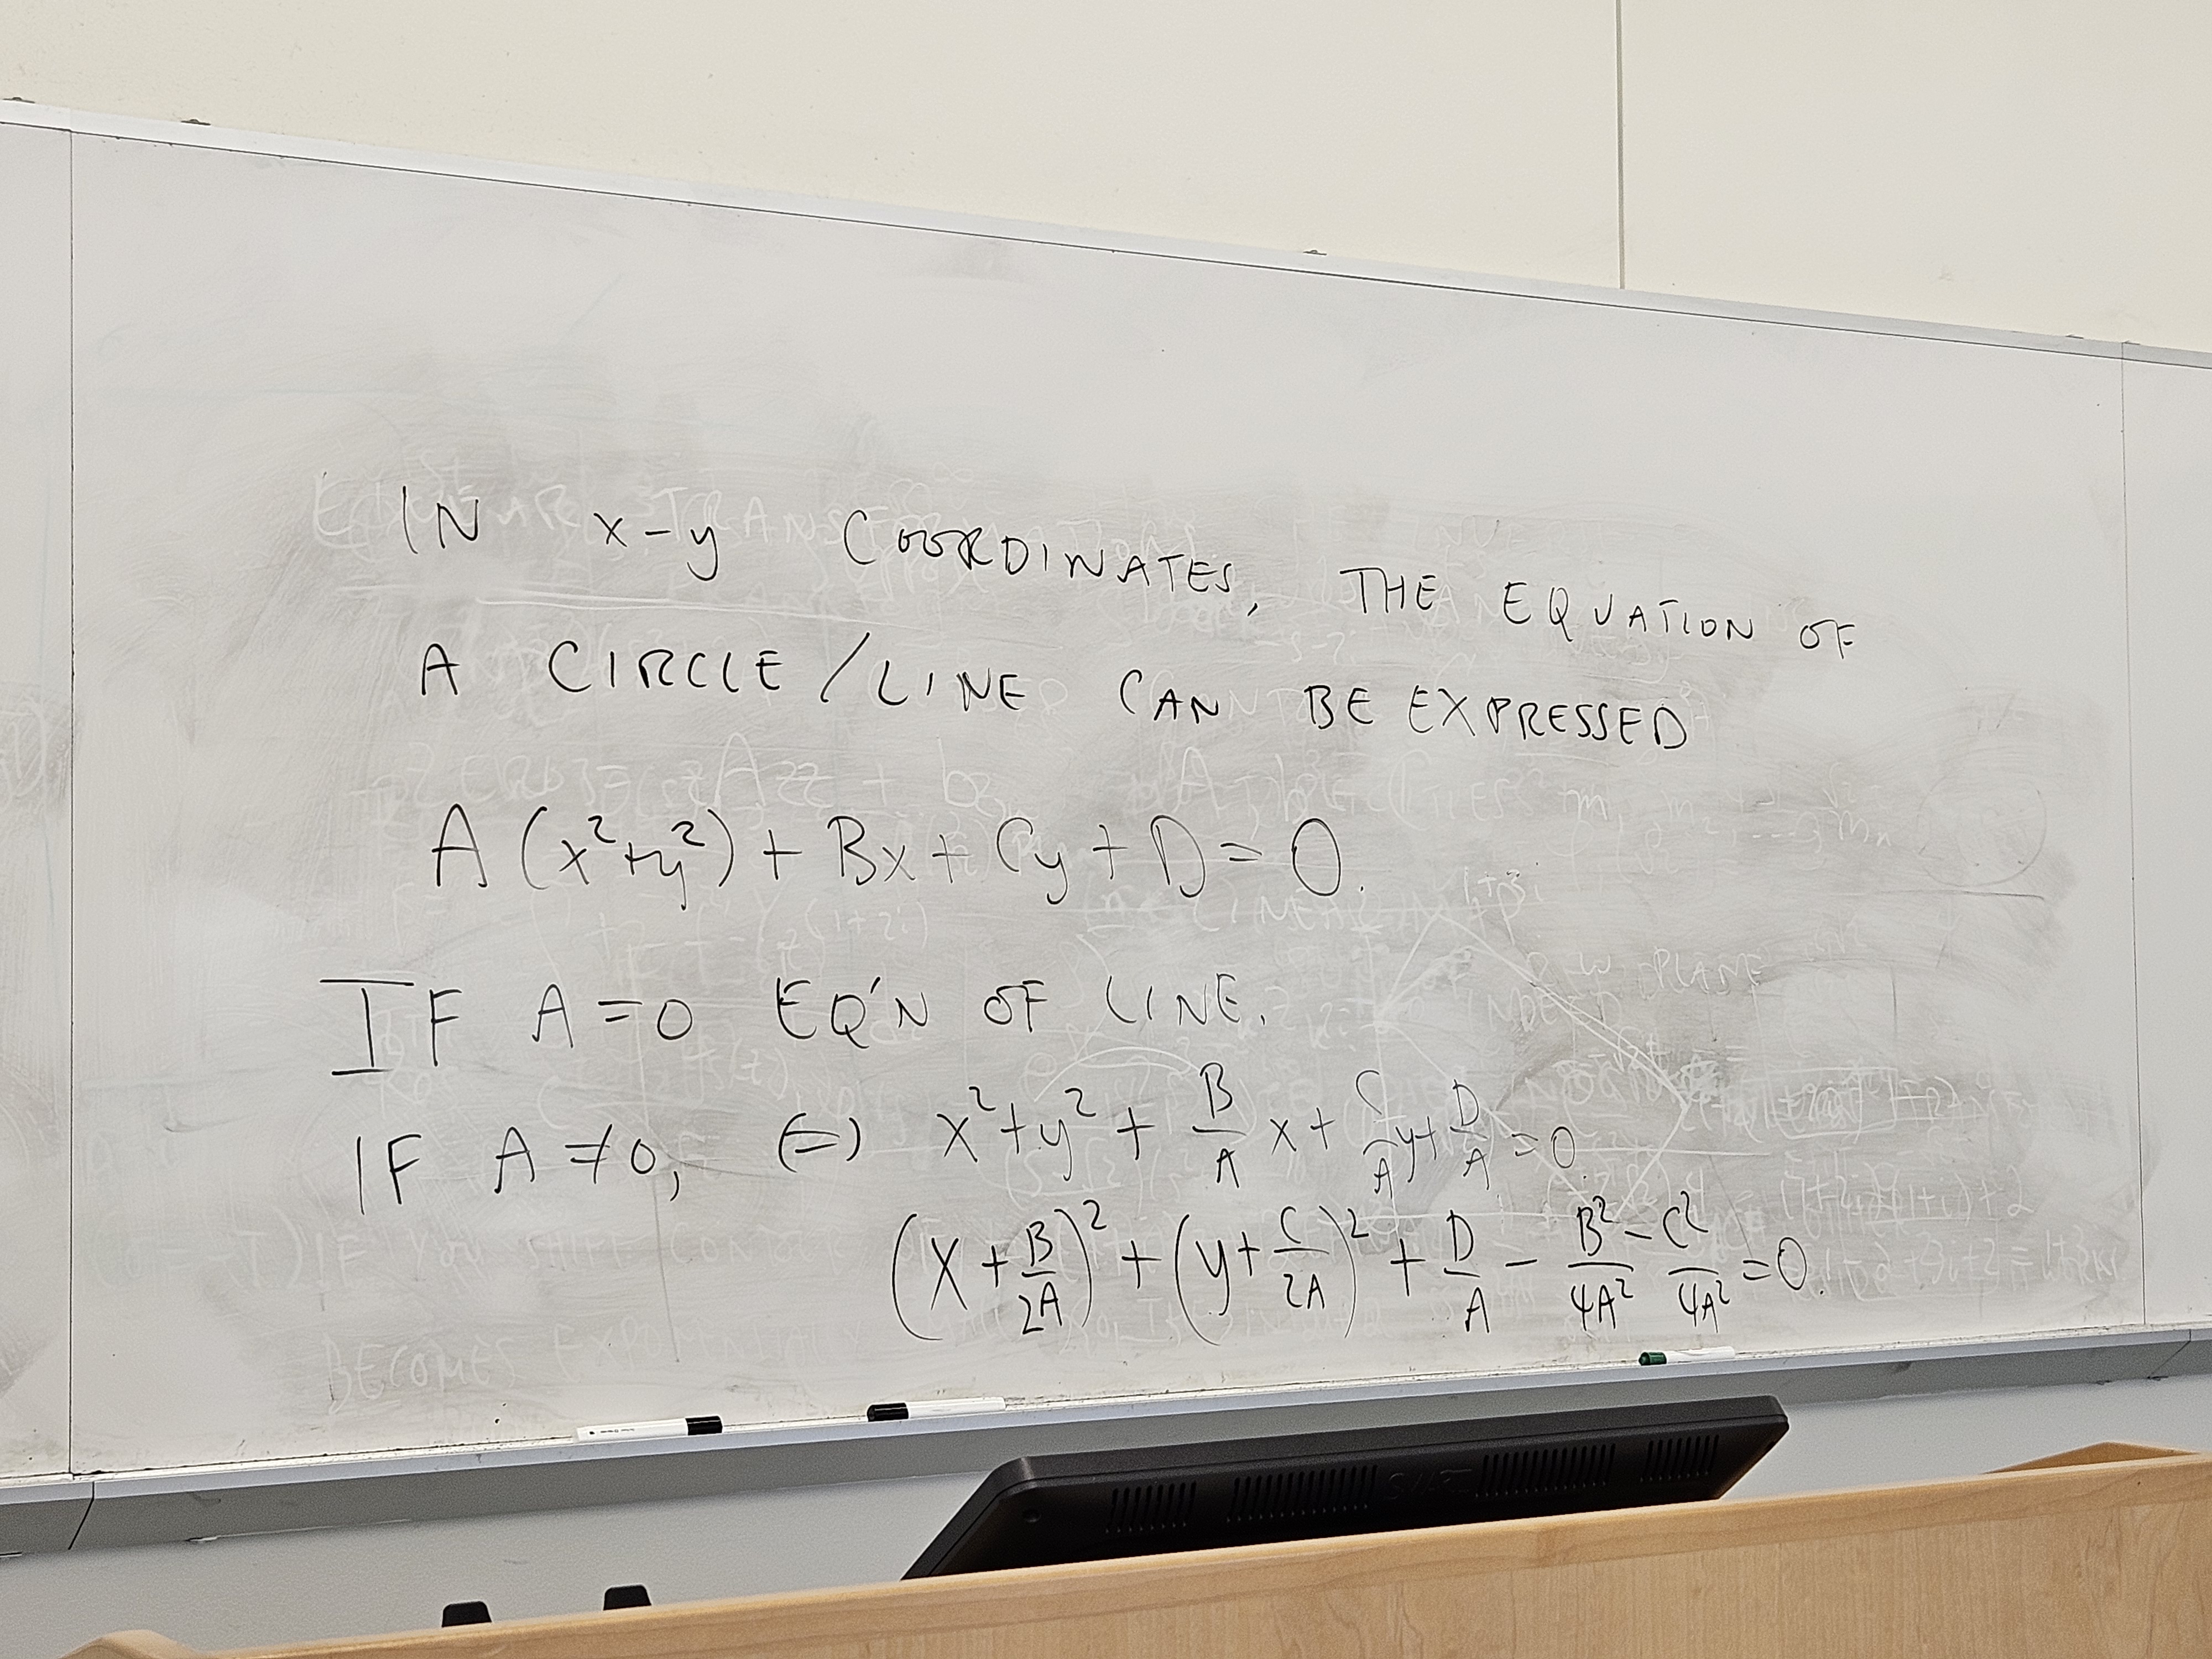 IN x-y COORDINATES, THE EQUATION OF
A CIRCLE/LINE CAN BE EXPRESSED
A(x²+y²) + Bx + Cy + D = 0.
IF A=0 EQ'N OF LINE.
IF A≠0, (=) x²+y² + B/A x + C/A y + D/A = 0
(x + B/2A)² + (y + C/2A)² + D/A - B²/4A² - C²/4A² = 0.